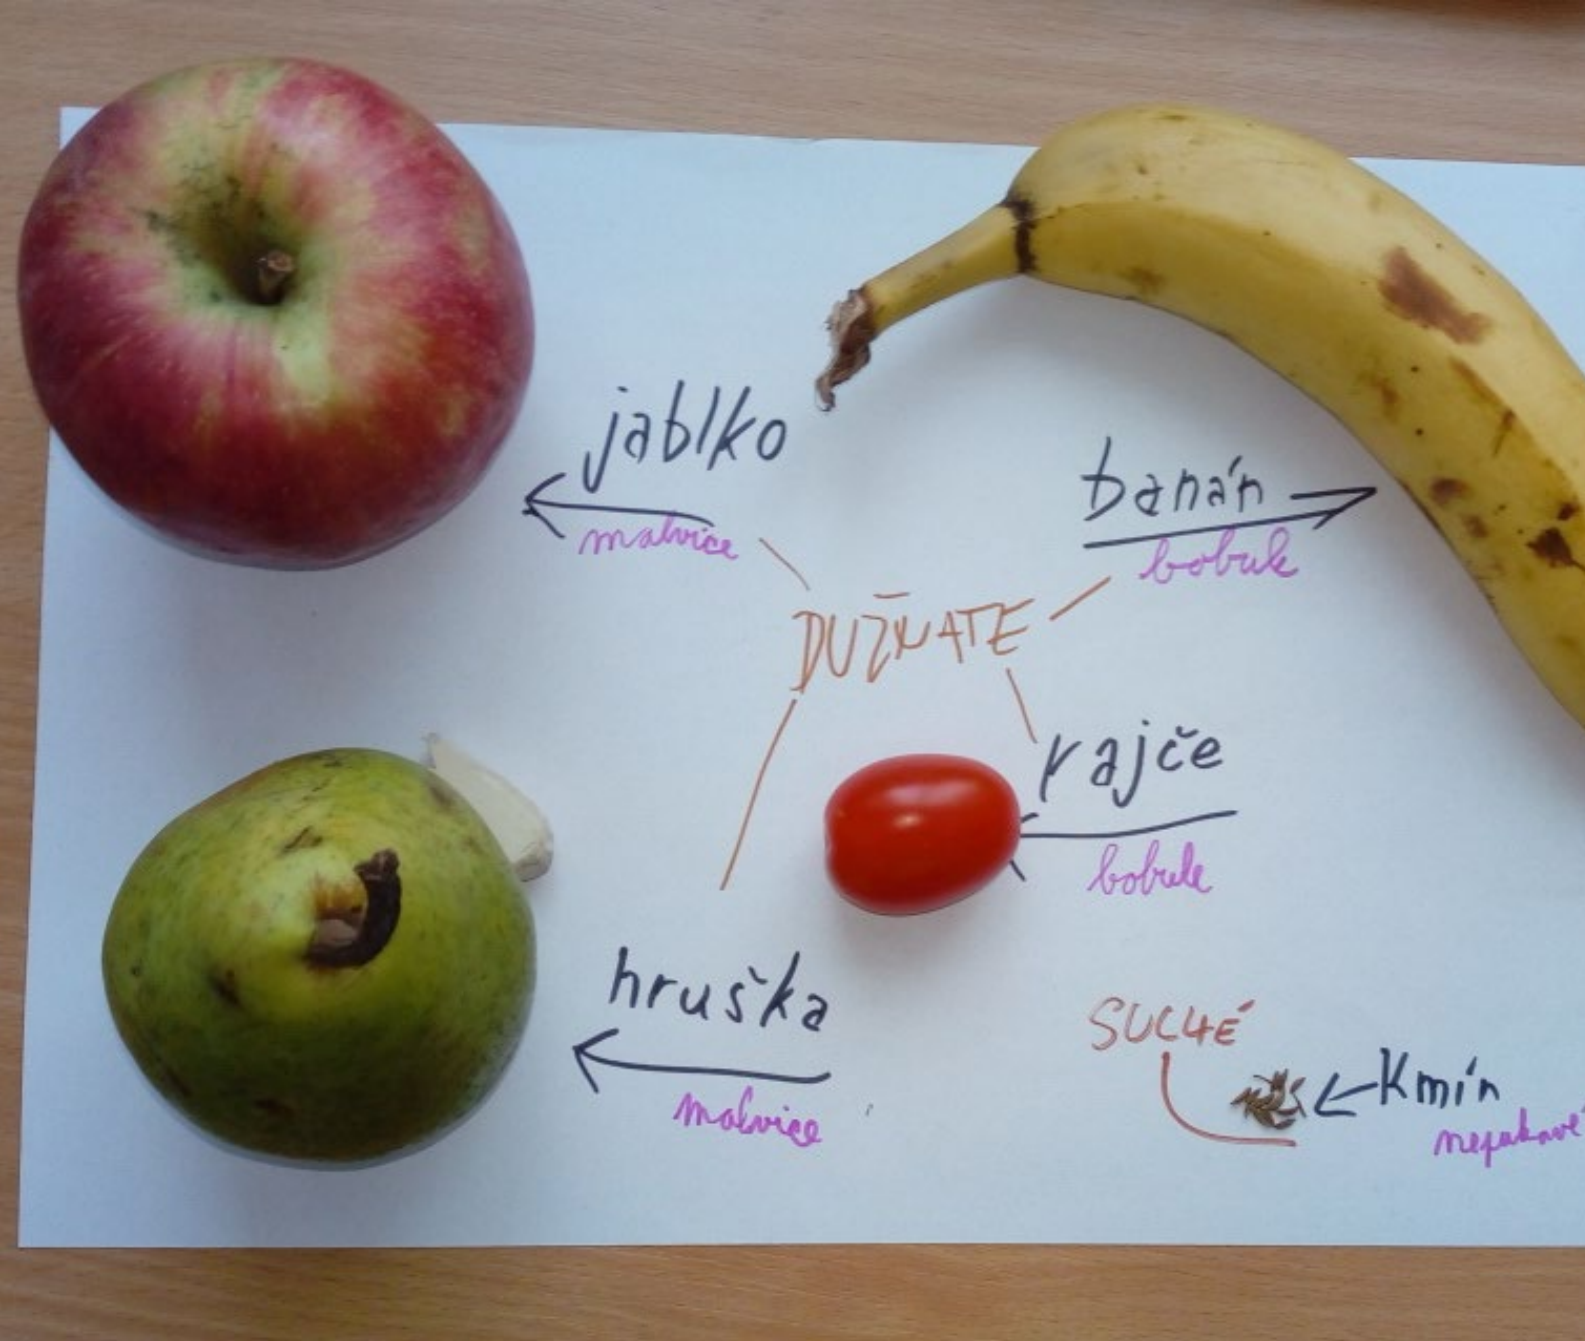 jablko
malvice
banán
bobule
DUŽNATE
rajče
bobule
hruška
malvice
SUCHÉ
kmín
nepukavé